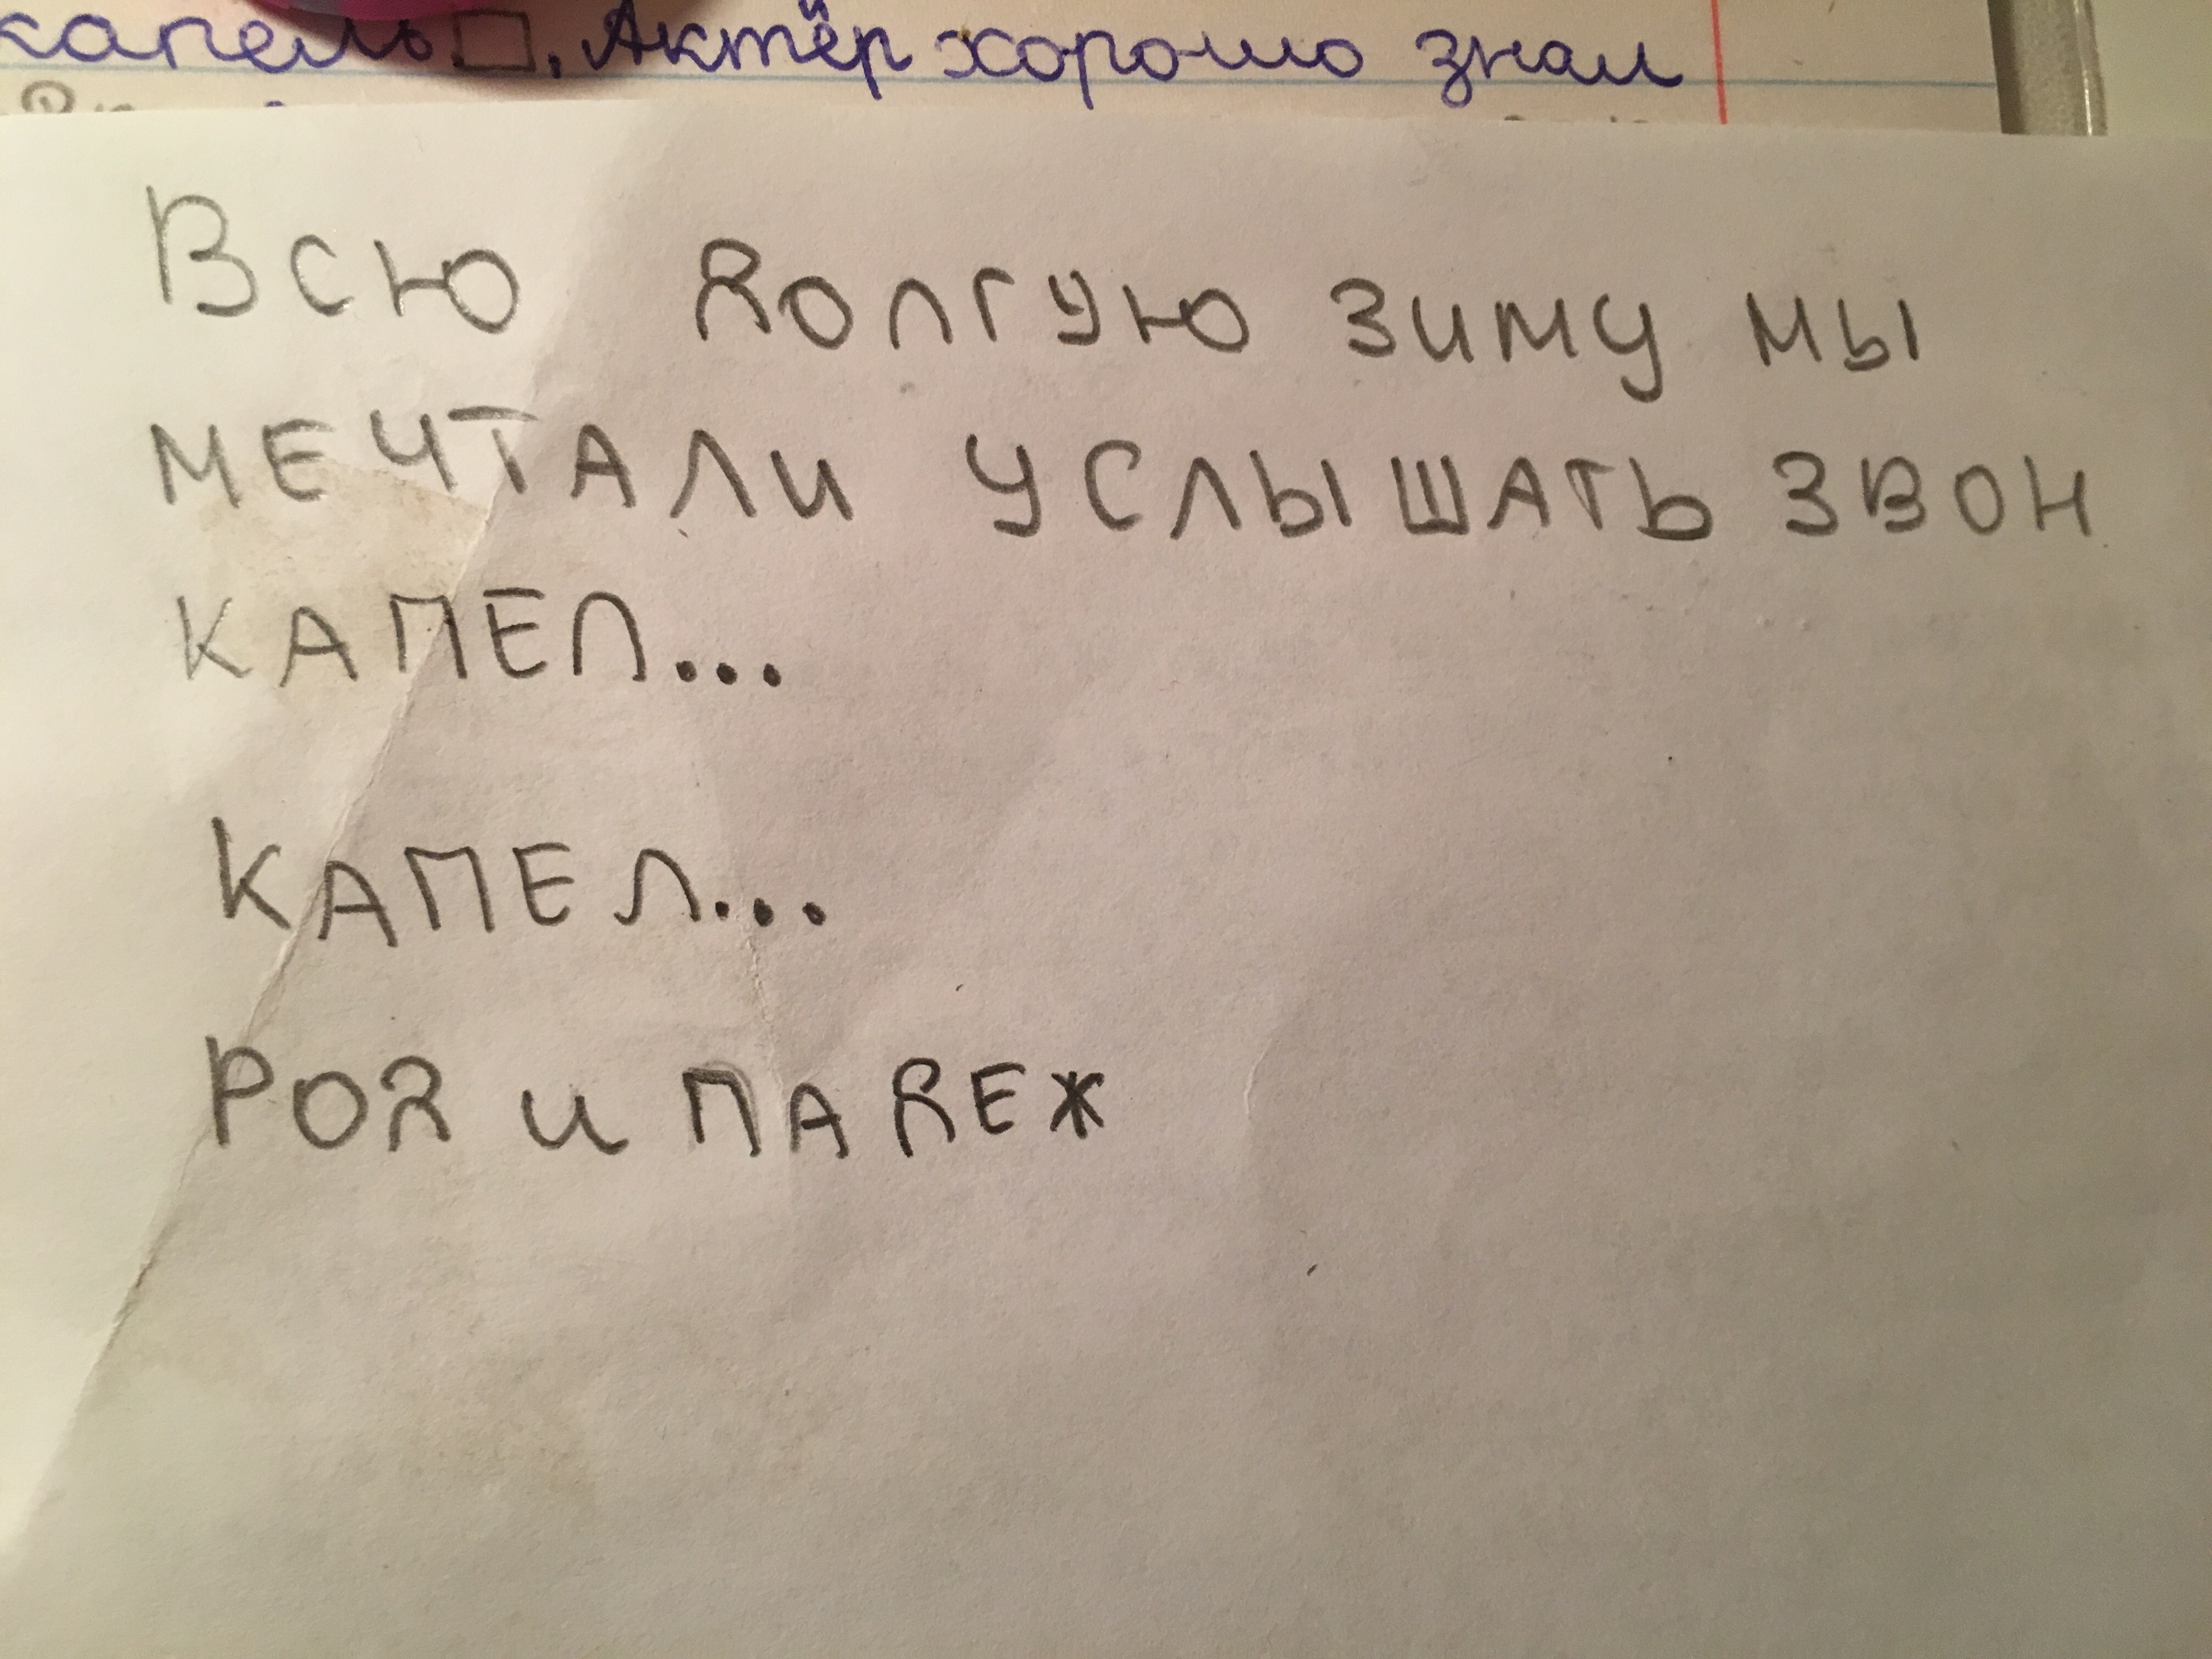 капель. Актёр хорошо знал
Всю долгую зиму мы
мечтали услышать звон
капел...
Капел...
Род и падеж